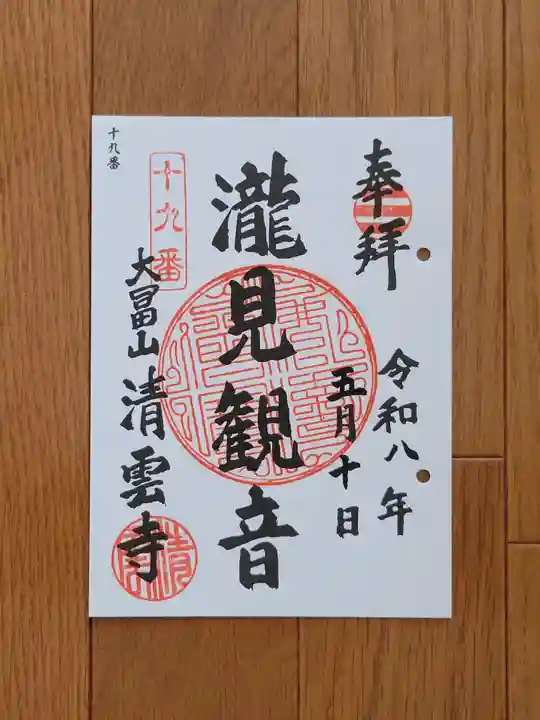 奉拝
令和八年
五月十日
瀧見観音
十九番
大冨山清雲寺
十九番